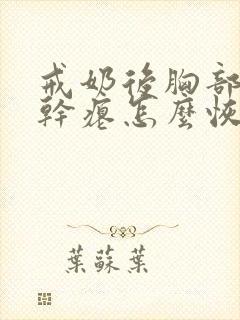 戒奶後胸部
幹癟怎麼恢
葉蘇葉